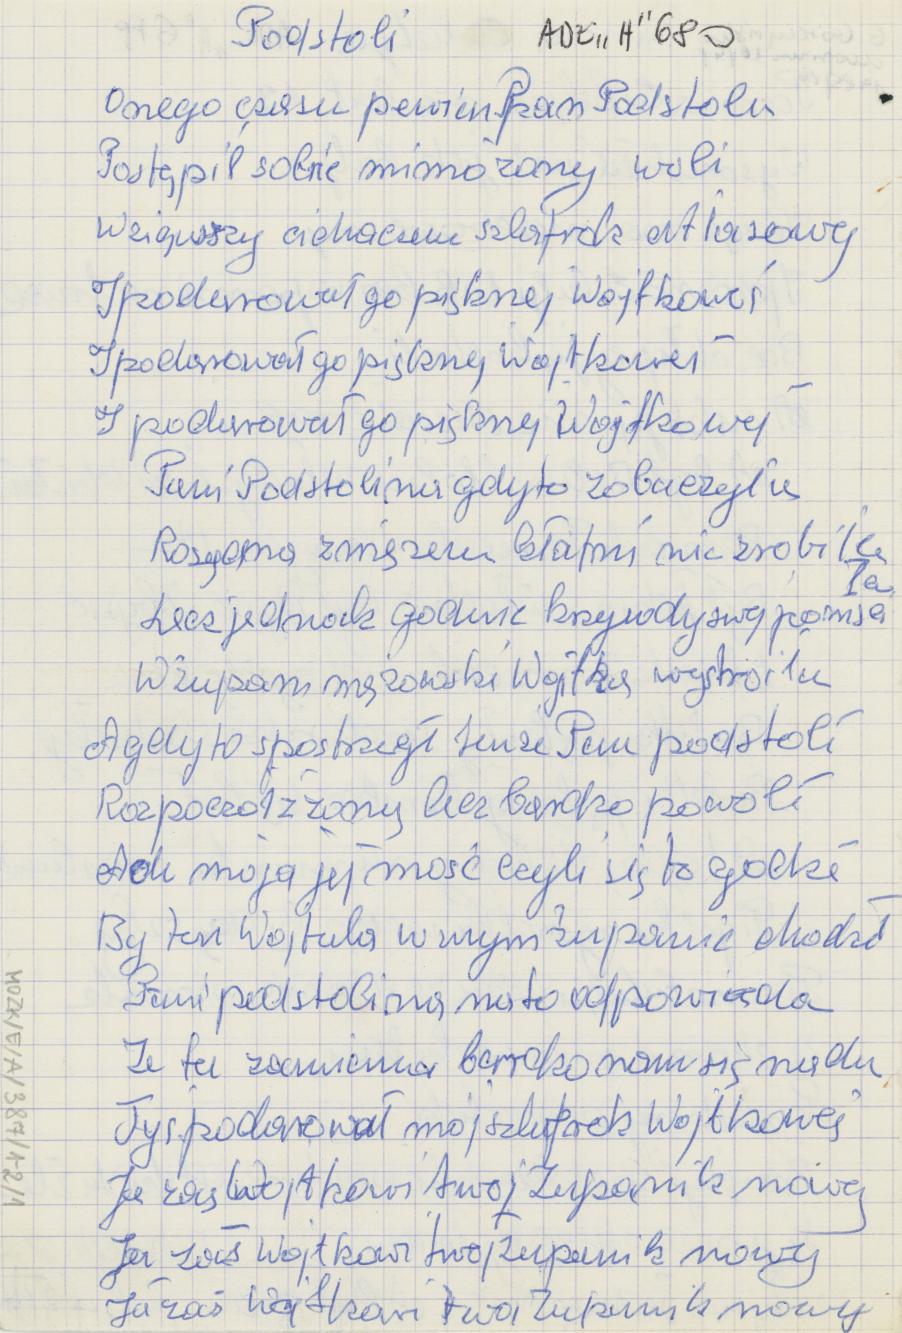 Podstoli ADZ „H" 68
Onego czasu pewien Pan Podstoli
Postąpił sobie mimo żony woli
Wziąwszy cichaczem szlafrok Atłasowy
I podarował go pięknej Wojtkowej
I podarował go pięknej Wojtkowej
I podarował go pięknej Wojtkowej
Pani Podstolina gdy to zobaczyła
Rozgama z mężem kłapni nie zrobiła
Lecz jednak godnie krzywdy swej pomsciła
W Żupan mężowski Wojtka wystroiła
A gdy to spostrzegł tenże Pan podstoli
Rozpoczoł z żoną lecz bardzo powoli
Ach moja jej mość czyli się to godzi
By ten Wojtala w mym żupanie chodził
Pani podstolina na to odpowiada
Ze ta zamiana bardzo nam się nada
Tyś podarował mój szlafrok Wojtkowej
Ja zaś Wojtkowi twoj Żupanik nowy
Ja zaś Wojtkowi twoj żupanik nowy
Ja zaś Wojtkowi twoj Żupanik nowy
MOZK/E/A/387/1-2/1